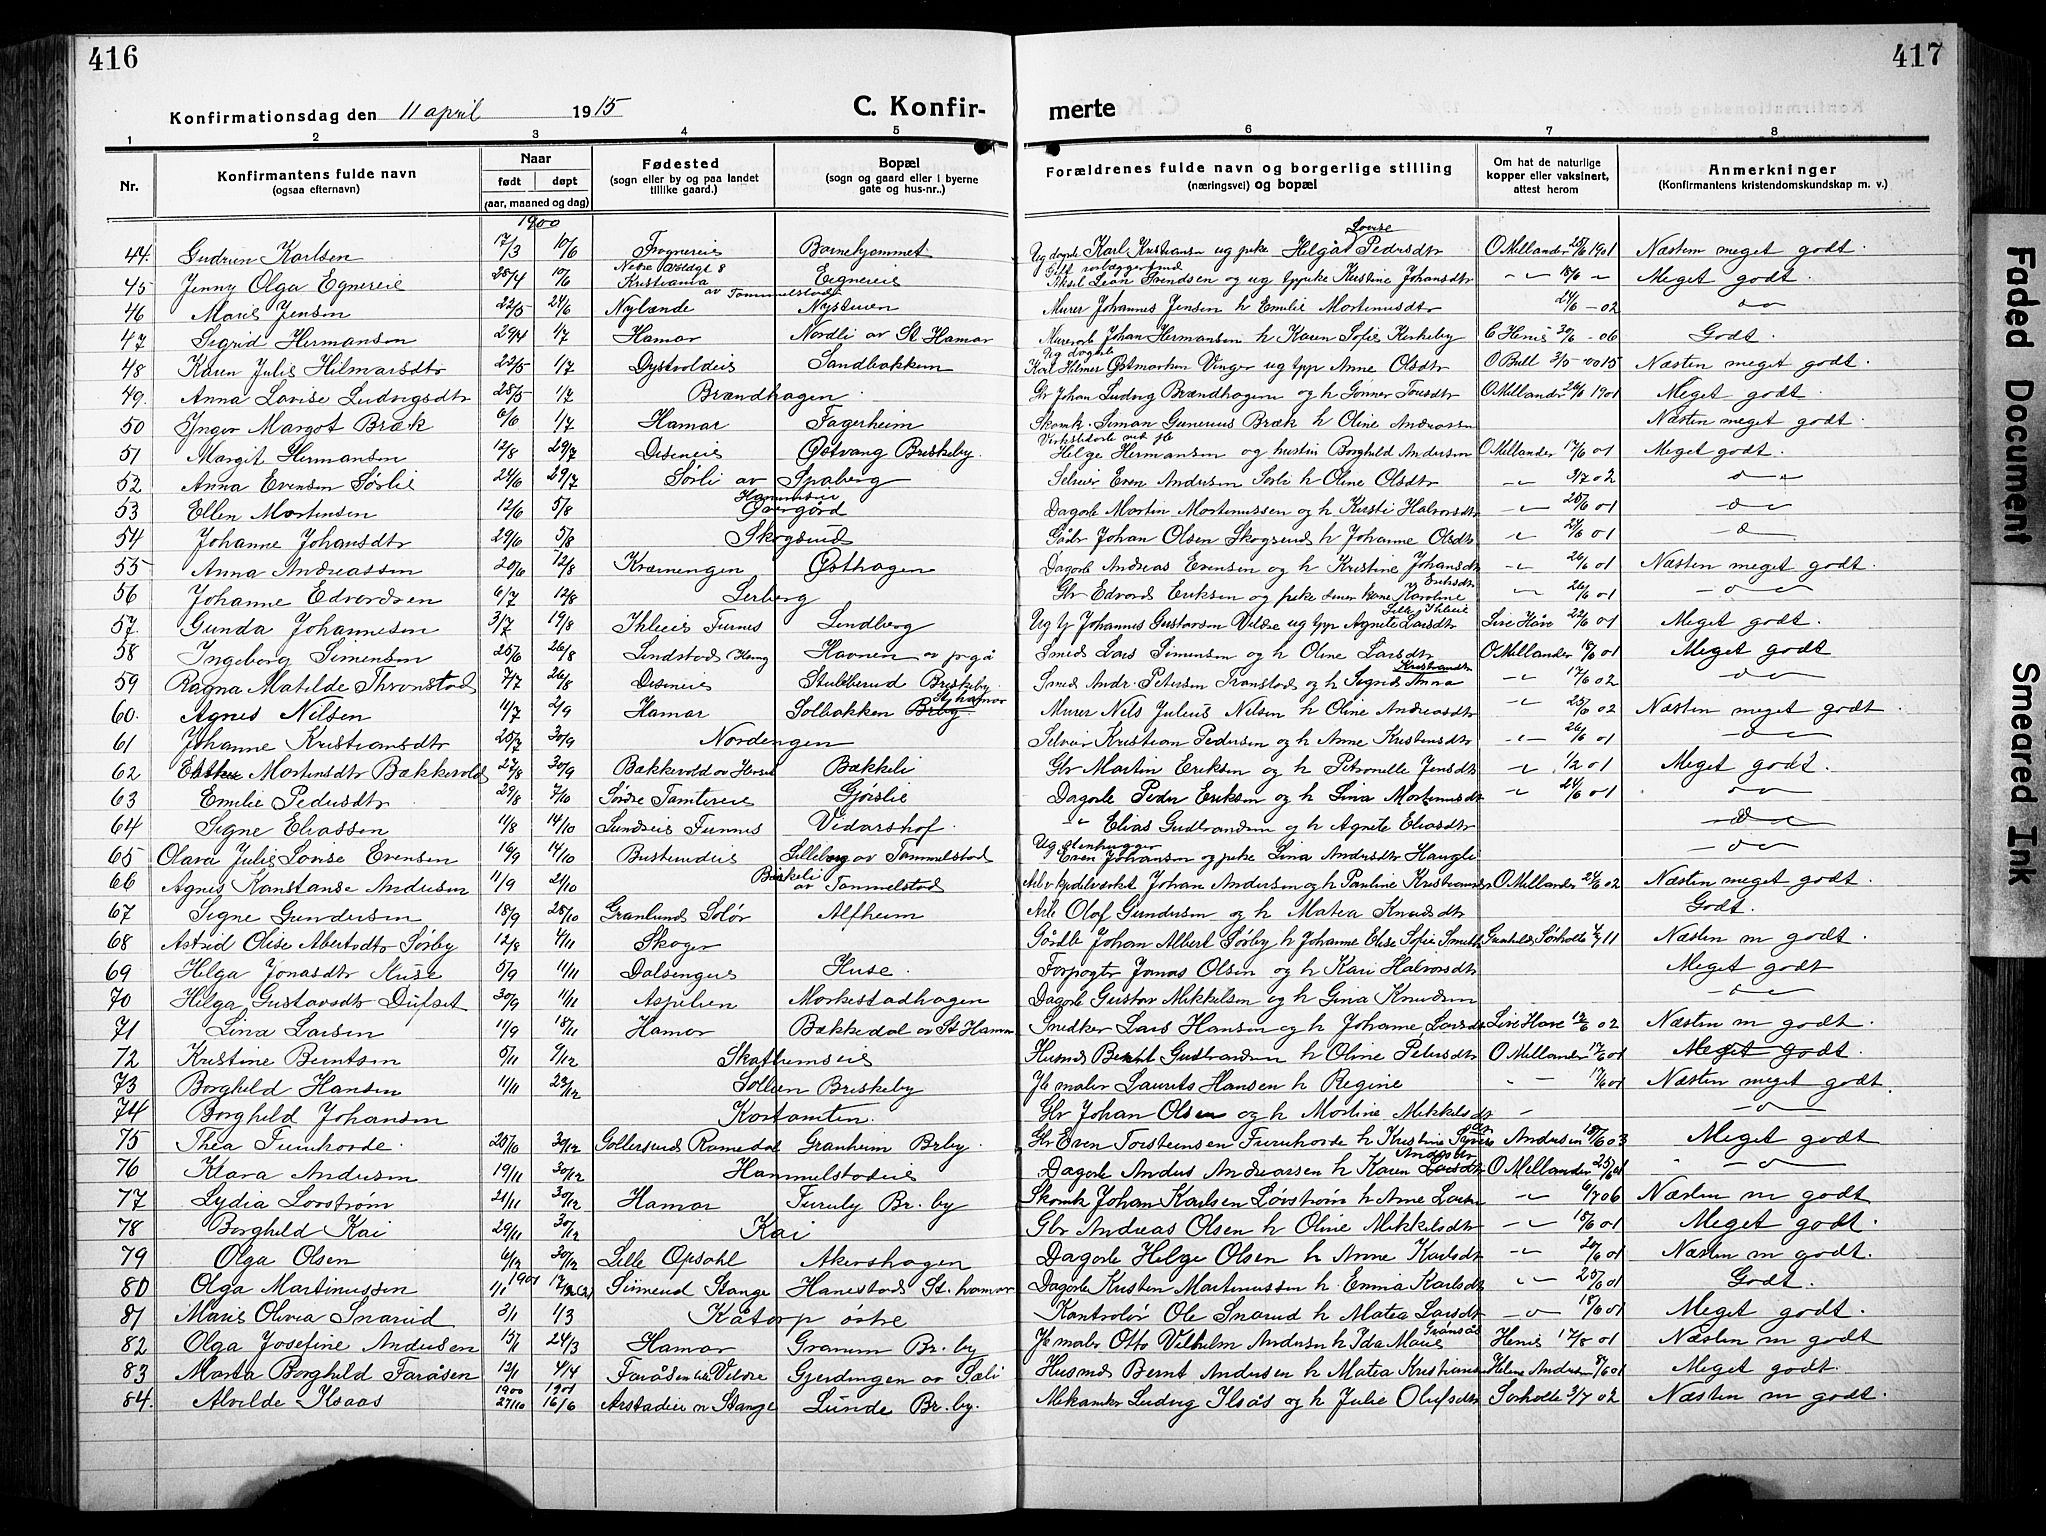 416
417
Konfirmationsdag den 11 april 1915
C. Konfir-
merte
1 2 3 4 5 6 7 8
Nr.
Konfirmantens fulde navn
(ogsaa efternavn)
Naar
født døpt
(aar, maaned og dag)
Fødested
(sogn eller by og paa landet
tillike gaard.)
Bopæl
(sogn og gaard eller i byerne
gate og hus-nr..)
Forældrenes fulde navn og borgerlige stilling
(næringsvei) og bopæl
Om hat de naturlige
kopper eller vaksinert,
attest herom
Anmerkninger
(Konfirmantens kristendomskundskap m. v.)
1900
44. Gudrun Karlsen 17/3 10/6 Frognereie Barnehjemmet Karl Kristiansen ug pike Helga Lovise Pedersdtr O Mellander 25/6 1901 Næsten meget godt.
45 Jenny Olga Egnereie 28/4 10/6 Kristiania Eegnereie Aksel Leon Svendsen og ug tjpike Kristine Johansdtr 18/6 Meget godt.
46 Marie Jensen 22/5 24/6 Nylænde Nystuen av Tommelstad Murer Johannes Jensen h Emilie Mortinusdtr 24/6 - 02
47 Sigrid Hermansen 29/4 1/7 Hamar Nordli av St Hamar Murerarb Johan Hermansen h Karen Sofie Kirkeby C Henie 30/6 - 06 Godt.
48 Karen Julie Hilmarsdtr 22/5 1/7 Dystvoldeie Sandbakken Karl Hilmer Østmarken Vinger ug tjp Anne Olsdtr O Bull 3/5 Næsten meget godt.
49. Anna Lovise Ludvigsdtr 28/5 1/7 Brændhagen Gbr Johan Ludvig Brændhagen og h Gunner Tousdtr O Mellander 26/6 1901 Meget godt.
50 Ynger Margot Bræk 6/6 1/7 Hamar Fagerheim Skomk. Simen Gunerius Bræk h Oline Andreassen Næsten meget godt.
51 Margit Hermansen 12/8 29/7 Diseneie Østvang Briskeby. Helge Hermansen og hustru Borghild Andersen O Mellander 17/6 01 Meget godt.
52 Anna Evensen Sørlie 24/6 29/7 Sørli av Spaberg Selveier Even Andersen Sørli h Oline Olsdtr 3/7 02
53 Ellen Mortensen 12/6 5/8 Dagarb Martin Mortenussen og h Kirsti Halvorsdtr 25/6 01
54 Johanne Johansdtr 29/6 5/8 Skogsrud Gårbr Johan Olsen Skogsrud h Johanne Olsdtr 24/6 01
55 Anna Andreassen 20/6 12/8 Kværningen Østhagen Dagarb Andreas Evensen og h Kristine Johansdtr 26/6 01 Næsten meget godt.
56 Johanne Edvardsen 6/7 12/8 Lerberg Gbr Edvard Eriksen og pike Karoline Eriksdtr 26/6 01
57 Gunda Johannesen 3/7 19/8 Ihleeie Furnes Lindberg Johannes Gustavsen Veldre ug tjp Agnete Larsdtr Lille Ihleeie Live Håve 22/6 01 Meget godt.
58 Ingeborg Simensen 25/6 26/8 Lindstad Havnen av p-gå Smed Lars Simensen og h Oline Larsdtr O Mellander 18/6 01 Meget godt
59 Ragna Matilde Thronstad 7/7 26/8 Diseneie Stubberud Briskeby. Smed Andr. Petersen Tronstad og h Sigrid Anna Kristiansdtr 17/6 02
60. Agnes Nilsen 11/7 2/9 Hamar Solbakken St. hamar Murer Nils Julius Nilsen h Oline Andreasdtr 25/6 02 Næsten meget godt.
61 Johanne Kristiansdtr 25/7 30/9 Nordengen Selveier Kristian Pedersen og h Anne Kristensdtr 26/6 01
62 Mortensdtr Bækkevold 27/8 30/9 Bækkevold Bækkeli Gbr Martin Eriksen og h Petronelle Jensdtr 1/2 01 Meget godt.
63 Emilie Pedersdtr 29/8 7/10 Søndre Tomtereie Gjørslie Dagarb Peder Eriksen og h Lina Mortinusdtr 24/6 01
64 Signe Eliassen 11/8 14/10 Sundseie Furnes Vidarshof. Elias Gudbrandsen og h Agnete Eliasdtr
65 Olava Julie Lovise Evensen 16/9 14/10 Busterudeie Lilleberg av Tommelstad Even Johansen og pike Lina Andersdtr Haugli
66 Agnes Konstanse Andersen 11/9 21/10 Birkeli av Tommelstad Johan Andersen og h Pauline Kristiansdtr O Mellander 24/6 02 Næsten meget godt.
67 Signe Gundersen 18/9 28/10 Granlund Solør Alfheim Arb Olof Gundersen og h Matea Knudsdtr Godt.
68 Astrid Olise Albertsdtr Sørby 12/8 4/11 Skogn Gårdbr Johan Albert Sørby h Johanne Elise Sofie Næsten m godt.
69 Helga Jonasdtr Huse 5/9 11/11 Dalsengeie Huse. Forpagtr Jonas Olsen og h Kari Halvorsdtr Meget godt
70 Helga Gustavsdtr Dufset 30/9 11/11 Aspelien Morkestadhagen Dagarb Gustav Mikkelsen og h Gina Knudsen
71 Lina Larsen 11/9 18/11 Hamar Bækkedal av St Hamar Snedker Lars Hansen og h Johanne Larsdtr Live Have 12/6 02 Næsten m godt.
72 Kristine Berntsen 5/11 9/12 Skattumseie Husmd Bernt Gudbrandsen h Oline Petersdtr O Mellander 17/6 01 Meget godt.
73 Borghild Hansen 11/11 23/12 Sollien Briskeby Jb maler Laurits Hansen h Regine 17/6 01 Næsten meget godt.
74 Borghild Johansen Kortamten. Gbr Johan Olsen og h Martine Mikkelsdtr
75 Thea Furuhovde. 25/10 30/12 Gollerud Romedal Granheim Brby. Gbr Even Torstensen Furuhovde h Kristine Andersen 18/6 03 Meget godt
76 Klara Andersen 19/11 30/12 Hammelstadeie Dagarb Anders Andreassen h Karen Andersdtr O Mellander 25/6 01
77 Lydia Lovstrøm 21/11 30/12 Hamar Furuly Br. by Skomk Johan Karlsen Lovstrøm h Anne Larsen 6/7 06 Næsten m godt
78 Borghild Kai 29/11 30/12 Kai Gbr Andreas Olsen h Oline Mikkelsdtr 18/6 01 Meget godt.
79 Olga Olsen 6/12 30/12 Lille Opsahl Akershagen Dagarb Helge Olsen h Anne Karlsdtr 20/6 01 Næsten m godt.
80 Olga Martinussen 1/1 1901 Sinnerud Stange Hanestad St. hamar Dagarb Kristen Martinussen h Emma Karlsdtr 25/6 01 Godt.
81 Marie Olivia Snarud 3/1 1/3 Kåtorp østre Kontrolør Ole Snarud h Matea Larsdtr 18/6 01 Meget godt.
82 Olga Josefine Andersen 15/1 24/3 Hamar Granum Br. by Jb maler Otto Vilhelm Andersen h Ida Marie Grønsås Henie 17/8 01 Næsten m godt
83 Marta Borghild Faråsen 12/1 4/4 Faråsen Veldre Gjerdingen av Sæli Husmd Bernt Andersen h Matea Kristiansen Helene Andersen 8/6 01 Meget godt.
84. Alvilde Ilsaas 1900 27/10 1901 16/6 Arstadeie n Stange Lunde Br. by. Mekaniker Ludvig Ilsås og h Julie Olufsdtr Sorholte 3/7 02 Næsten m godt.
Faded Document
Smeared Ink